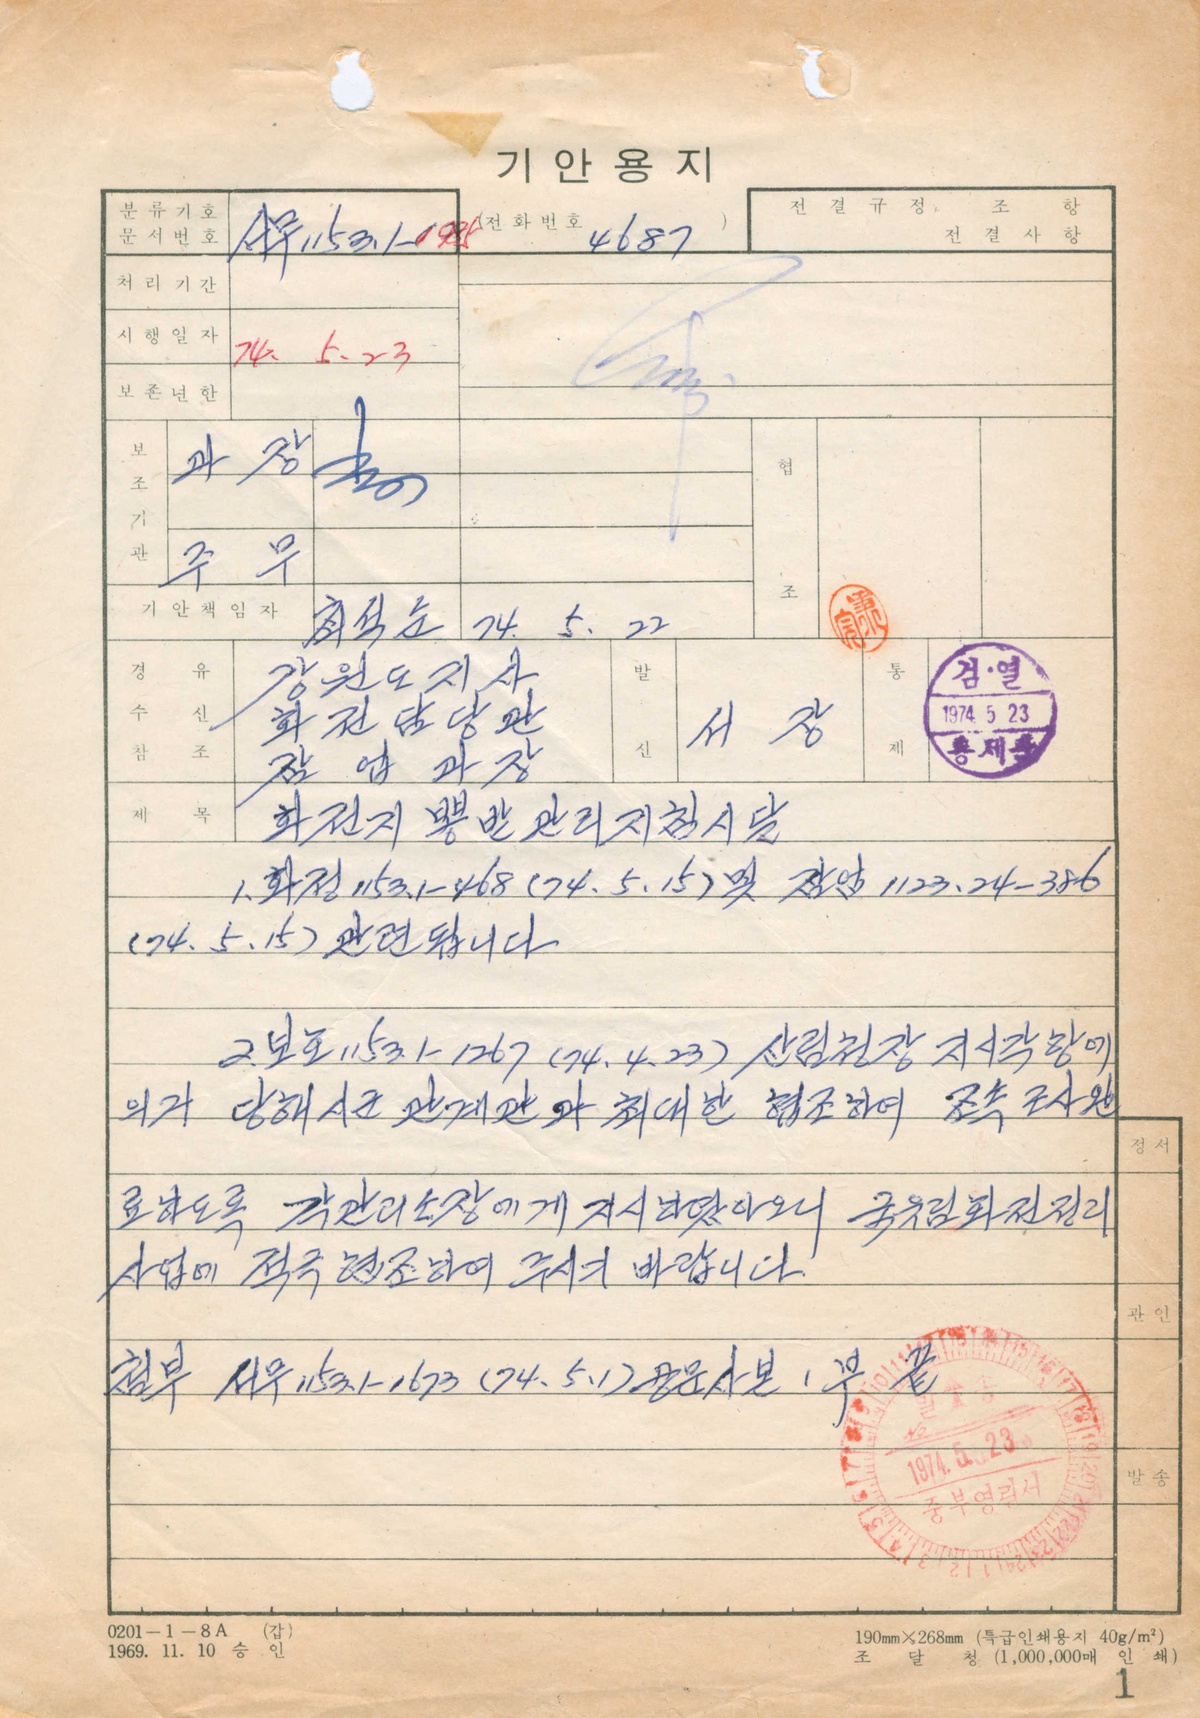 기안용지
분류기호
문서번호 서무1153.1-1985
(전화번호 4687 )
전결규정 조 항
전결사항
처리기간
시행일자 74. 5. 23
보존년한
보조기관
과장
주무
협조
기안책임자 최석순 74. 5. 22
경유 강원도지사
수신 화전담당관
참조 잠업과장
발신 서장
통제
검·열
1974. 5 23
통제관
제목 화전지 뽕밭관리지침시달
1. 화정1153.1-468 (74. 5. 15) 및 잠업 1123.24-386
(74. 5. 15) 관련됩니다
2. 보호1153.1-1267 (74. 4. 23) 산림청장 지시각항에
의거 당해시군 관계관과 최대한 협조하여 조속 조사완
료하도록 각관리소장에게 지시하였아오니 국유림화전정리
사업에 적극 협조하여 주시기 바랍니다.
첨부 서무1153.1-1673 (74. 5. 1) 공문사본 1부 끝
정서
관인
발송
1974. 5. 23
중부영림서
0201-1-8A (갑)
1969. 11. 10 승인
190mm×268mm (특급인쇄용지 40g/m²)
조달청 (1,000,000매 인쇄)
1